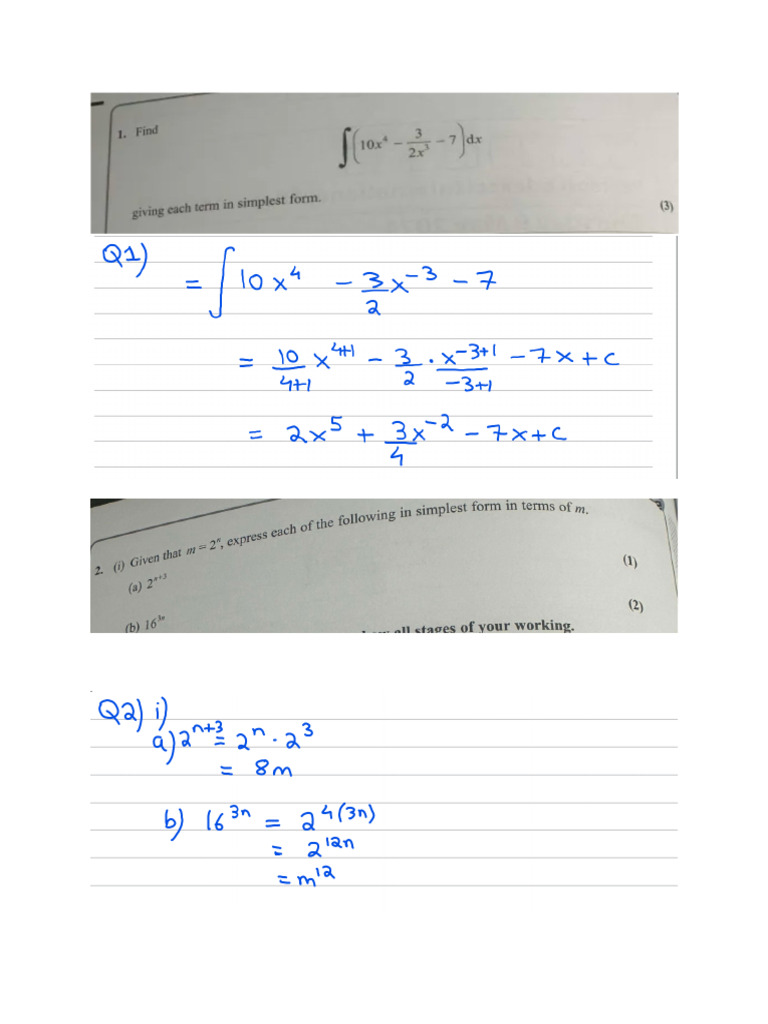 1. Find
∫(10x⁴ − 3/2x³ − 7)dx
giving each term in simplest form.
(3)
Q1)
= ∫ 10x⁴ − 3/2 x⁻³ − 7
= 10/4+1 x⁴⁺¹ − 3/2 · x⁻³⁺¹/−3+1 − 7x + c
= 2x⁵ + 3x⁻²/4 − 7x + c
2. (i) Given that m = 2ⁿ, express each of the following in simplest form in terms of m.
(a) 2ⁿ⁺³
(1)
(b) 16³ⁿ
(2)
all stages of your working.
Q2) i)
a) 2ⁿ⁺³ = 2ⁿ · 2³
= 8m
b) 16³ⁿ = 2⁴⁽³ⁿ⁾
= 2¹²ⁿ
= m¹²